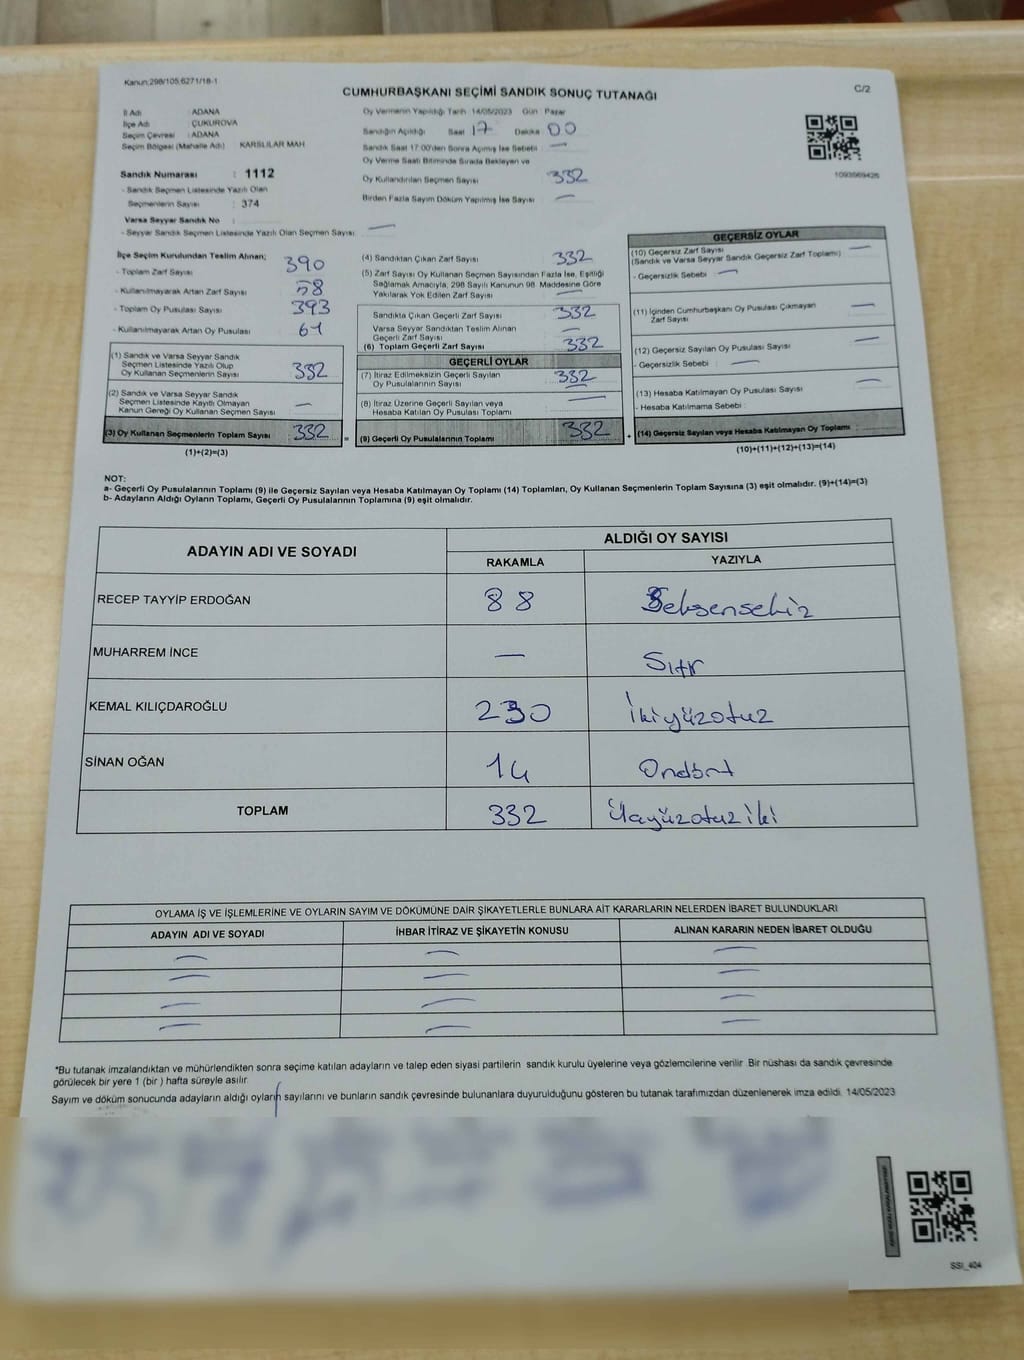 Kanun:298/105;6271/18-1
CUMHURBAŞKANI SEÇİMİ SANDIK SONUÇ TUTANAĞI
C/2
İl Adı : ADANA
İlçe Adı : ÇUKUROVA
Seçim Çevresi : ADANA
Seçim Bölgesi (Mahalle Adı) KARSLILAR MAH
Sandık Numarası : 1112
- Sandık Seçmen Listesinde Yazılı Olan
Seçmenlerin Sayısı : 374
Varsa Seyyar Sandık No :
- Seyyar Sandık Seçmen Listesinde Yazılı Olan Seçmen Sayısı : —
Oy Vermenin Yapıldığı Tarih 14/05/2023 Gün : Pazar
Sandığın Açıldığı Saat 17 Dakika 00
Sandık Saat 17:00'den Sonra Açılmış İse Sebebi —
Oy Verme Saati Bitiminde Sırada Bekleyen ve
Oy Kullandırılan Seçmen Sayısı 332
Birden Fazla Sayım Döküm Yapılmış İse Sayısı —
1093569426
İlçe Seçim Kurulundan Teslim Alınan;
- Toplam Zarf Sayısı 390
- Kullanılmayarak Artan Zarf Sayısı 58
- Toplam Oy Pusulası Sayısı 393
- Kullanılmayarak Artan Oy Pusulası 61
(1) Sandık ve Varsa Seyyar Sandık
Seçmen Listesinde Yazılı Olup
Oy Kullanan Seçmenlerin Sayısı 332
(2) Sandık ve Varsa Seyyar Sandık
Seçmen Listesinde Kayıtlı Olmayan
Kanun Gereği Oy Kullanan Seçmen Sayısı —
(3) Oy Kullanan Seçmenlerin Toplam Sayısı 332 =
(1)+(2)=(3)
(4) Sandıktan Çıkan Zarf Sayısı 332
(5) Zarf Sayısı Oy Kullanan Seçmen Sayısından Fazla İse, Eşitliği
Sağlamak Amacıyla, 298 Sayılı Kanunun 98 Maddesine Göre
Yakılarak Yok Edilen Zarf Sayısı —
Sandıkta Çıkan Geçerli Zarf Sayısı 332
Varsa Seyyar Sandıktan Teslim Alınan
Geçerli Zarf Sayısı —
(6) Toplam Geçerli Zarf Sayısı 332
GEÇERLİ OYLAR
(7) İtiraz Edilmeksizin Geçerli Sayılan
Oy Pusulalarının Sayısı 332
(8) İtiraz Üzerine Geçerli Sayılan veya
Hesaba Katılan Oy Pusulası Toplamı —
(9) Geçerli Oy Pusulalarının Toplamı 332 +
GEÇERSİZ OYLAR
(10) Geçersiz Zarf Sayısı —
(Sandık ve Varsa Seyyar Sandık Geçersiz Zarf Toplamı)
- Geçersizlik Sebebi : —
(11) İçinden Cumhurbaşkanı Oy Pusulası Çıkmayan
Zarf Sayısı —
(12) Geçersiz Sayılan Oy Pusulası Sayısı —
- Geçersizlik Sebebi : —
(13) Hesaba Katılmayan Oy Pusulası Sayısı —
- Hesaba Katılmama Sebebi :
(14) Geçersiz Sayılan veya Hesaba Katılmayan Oy Toplamı :
(10)+(11)+(12)+(13)=(14)
NOT:
a- Geçerli Oy Pusulalarının Toplamı (9) ile Geçersiz Sayılan veya Hesaba Katılmayan Oy Toplamı (14) Toplamları, Oy Kullanan Seçmenlerin Toplam Sayısına (3) eşit olmalıdır. (9)+(14)=(3)
b- Adayların Aldığı Oyların Toplamı, Geçerli Oy Pusulalarının Toplamına (9) eşit olmalıdır.
ADAYIN ADI VE SOYADI
ALDIĞI OY SAYISI
RAKAMLA YAZIYLA
RECEP TAYYİP ERDOĞAN 88 Seksensekiz
MUHARREM İNCE — Sıfır
KEMAL KILIÇDAROĞLU 230 İkiyüzotuz
SİNAN OĞAN 14 Ondört
TOPLAM 332 Üçyüzotuziki
OYLAMA İŞ VE İŞLEMLERİNE VE OYLARIN SAYIM VE DÖKÜMÜNE DAİR ŞİKAYETLERLE BUNLARA AİT KARARLARIN NELERDEN İBARET BULUNDUKLARI
ADAYIN ADI VE SOYADI İHBAR İTİRAZ VE ŞİKAYETİN KONUSU ALINAN KARARIN NEDEN İBARET OLDUĞU
— — —
— — —
— — —
— — —
*Bu tutanak imzalandıktan ve mühürlendikten sonra seçime katılan adayların ve talep eden siyasi partilerin sandık kurulu üyelerine veya gözlemcilerine verilir. Bir nüshası da sandık çevresinde
görülecek bir yere 1 (bir ) hafta süreyle asılır.
Sayım ve döküm sonucunda adayların aldığı oyların sayılarını ve bunların sandık çevresinde bulunanlara duyurulduğunu gösteren bu tutanak tarafımızdan düzenlenerek imza edildi. 14/05/2023
SSI_404